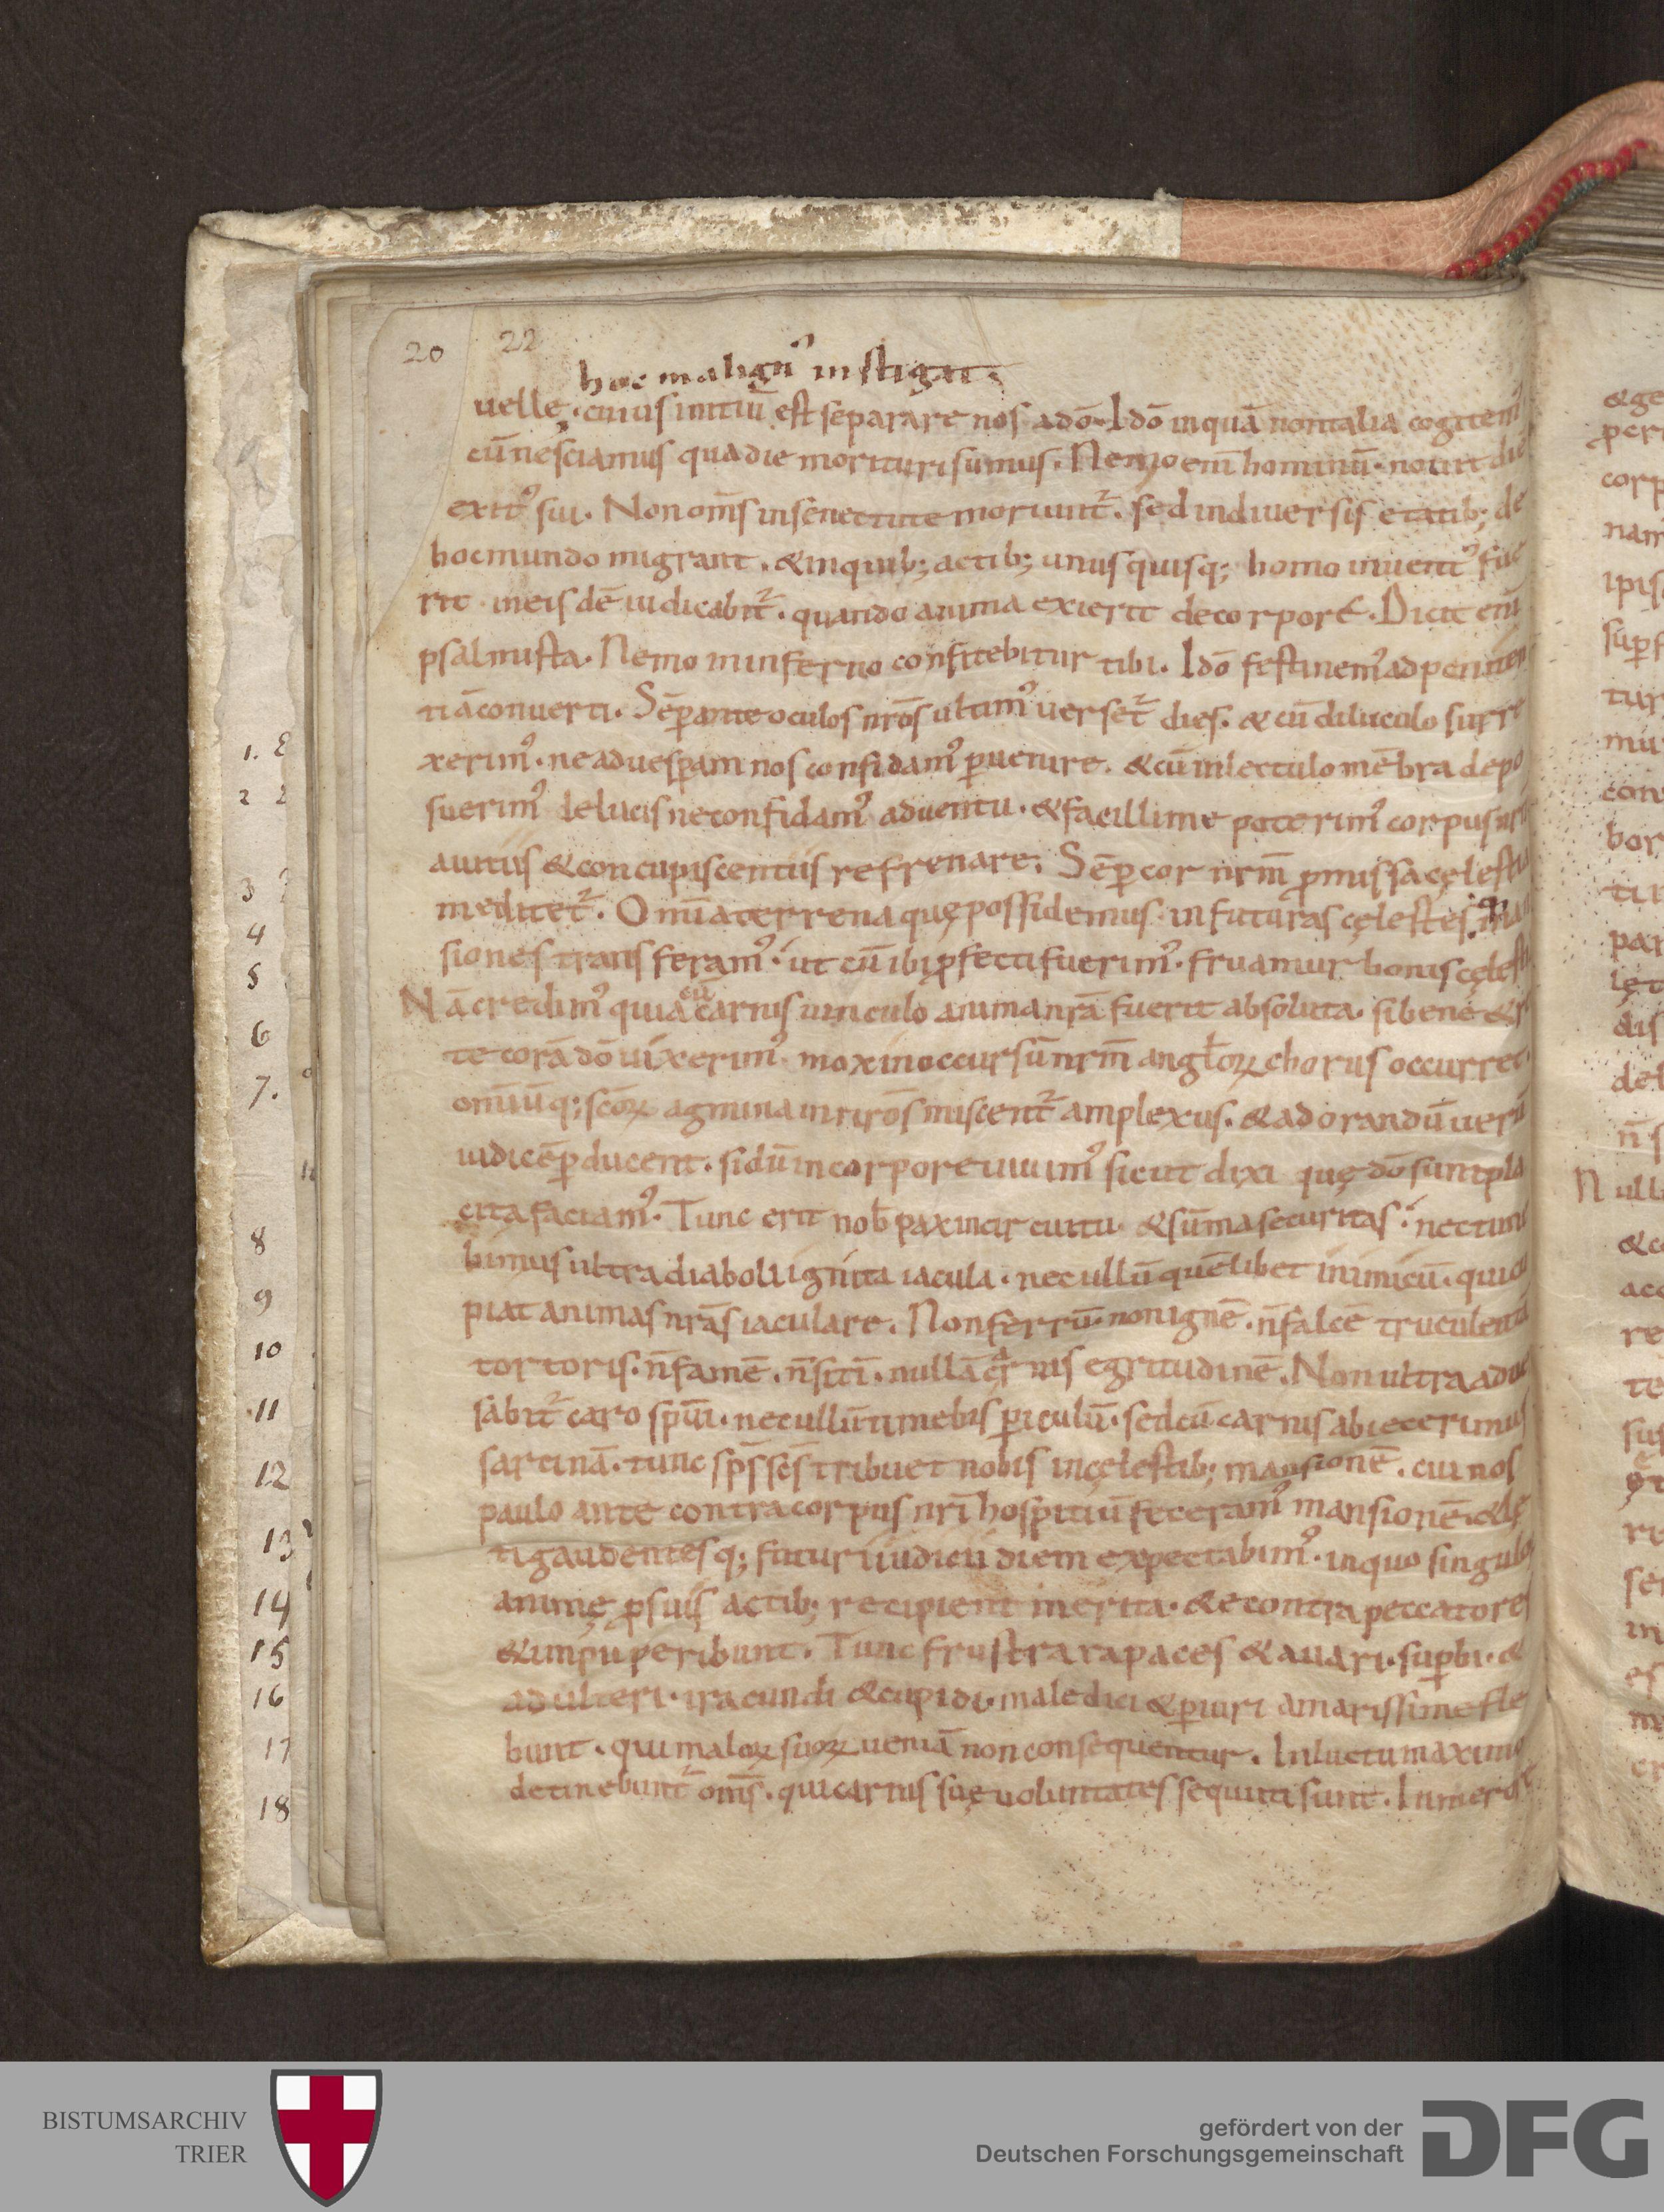 20 22
hoc malign᾿ instigat.
uelle. cuius initiū est separare nos adō. Idō inquā nontalia cogitem᾿
cū nesciamus qua die morituri sumus. Nemo enī hominū. nouit diē
exit᾿ sui. Non om̄s insenectute moriunt᷑. sed indiuersis etatib; de
hocmundo migrant. &inquib; actib; unusquisq; homo inuent᾿ fue
rit ineis dē iudicabit᷑. quando anima exierit decorpore. Dicit enī
psalmista. Nemo ininferno confitebitur tibi. Idō festinem᾿ adpeniten
tiāconuerti. Sēp ante oculos nrōs ultim᾿ uerset᷑ dies. & cū diluculo surre
xerim᾿. ne aduesperam nos confidam᾿ peruenire. &cū inlectulo mēbra depo
suerim᾿ delucis neconfidam᾿ aduentu. &facillime poterim᾿ corpus
auitiis &concupiscentiis refrenare. Sēp cor nrm̄ promissa cęlestia
meditet᷑. Omīa terrena quę possidemus infuturas cęlestes. man
siones transferam᾿. ut cū ibi profecti fuerim᾿. fruamur bonis cęlest
Nā credim᾿ quia cū carnis uinculo anima nrā fuerit absoluta. si bene &r
te corā dō uixerim᾿. mox inoccursū nrm̄ angłoꝝ chorus occurret.
omīūq; scōꝝ agmina in nrōs miscent᷑ amplexus. & adorandū uerū
iudicē perducent. sidū incorpore uiuim᾿ sicut dixi quę dō sunt pla
cita faciam᾿. Tunc erit nob̄ pax incircuitu &sūma securitas. nec time
bimus ultra diaboli ignita iacula. nec ullū quēlibet inimicū. qui cu
piat animas nrās iaculare. Non ferrū. non ignē. n̄ falcē truculenta
tortoris. n̄ famē. n̄ sitī. nullā carnis egritudinē. Non ultra aduer
sabit᷑ caro spūi. nec ullū timebis periculū. sed cū carnis abiecerimus
sarcinā. tunc sp̄s sc̄s tribuet nobis incęlestib; mansionē. cui nos
paulo ante contra corpus nrī hospitiū feceram᾿ mansionē. &lę
ti gaudentesq; futuri iudicii diem expectabim᾿. inquo singulę
animę prosuis actib; recipient merita. &econtra peccatores
&impii peribunt. Tunc frustra rapaces &auari. superbi. &
adulteri. iracundi &cupidi. maledici &periuri amarissime fle
bunt. qui maloꝝ suoꝝ ueniā non consequentur. Inluctu maximo
detinebunt᷑ om̄s. qui carnis suę uoluntates sequuti sunt.
1.
2
3
4
5
6
7.
8
9
10
11
12
13
14
15
16
17
18
BISTUMSARCHIV
TRIER
gefördert von der
Deutschen Forschungsgemeinschaft
DFG